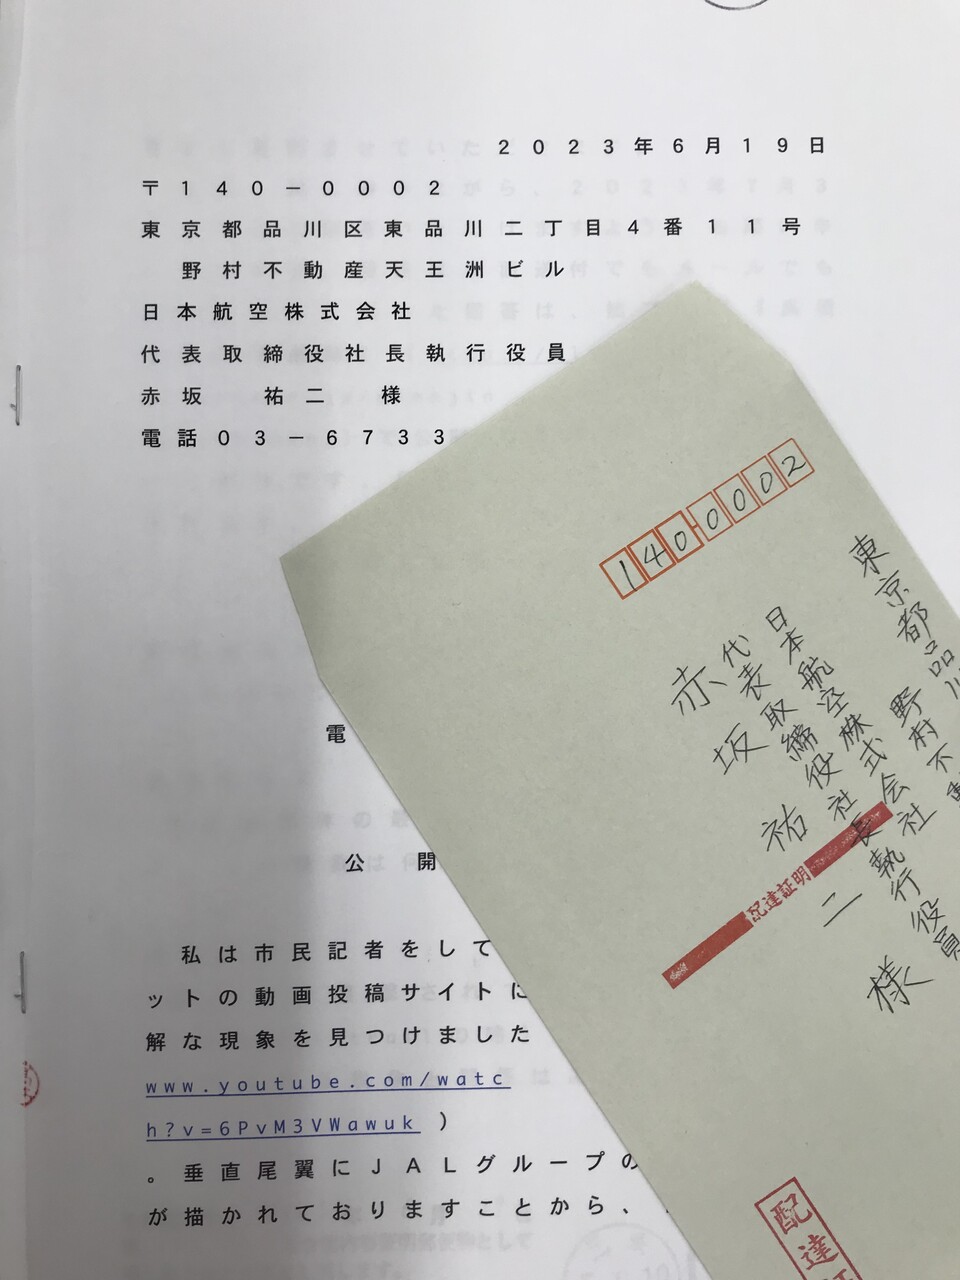 2023年6月19日
〒140-0002
東京都品川区東品川二丁目4番11号
野村不動産天王洲ビル
日本航空株式会社
代表取締役社長執行役員
赤坂　祐二　様
電話03-6733
電
公開
私は市民記者をして
ットの動画投稿サイトに
解な現象を見つけました
www.youtube.com/watc
h?v=6PvM3VWawuk )
。垂直尾翼にJALグループの
が描かれておりますことから、
140-0002
東京都品川
野村不動
日本航空株式会社
代表取締役社長執行役員
赤坂祐二様
配達証明
配達証